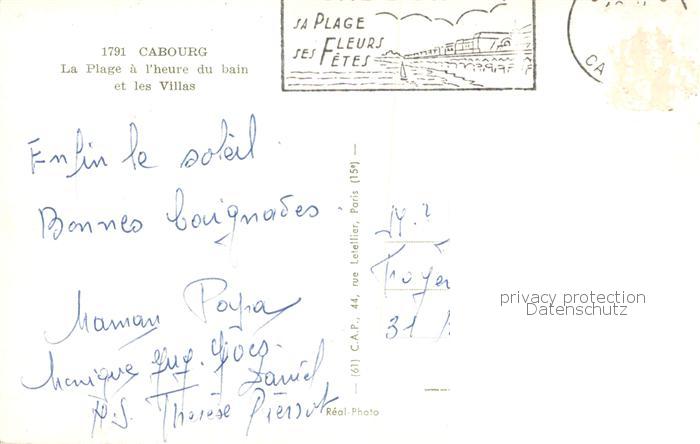 1791 CABOURG
La Plage à l'heure du bain
et les Villas
SA PLAGE
SES FLEURS
FÊTES
CA
Enfin le soleil.
Bonnes baignades.
Maman Papa
Monique
Daniel
Thérèse Pierrot
(61) C.A.P., 44, rue Letellier, Paris (15e)
Réal-Photo
31
privacy protection
Datenschutz